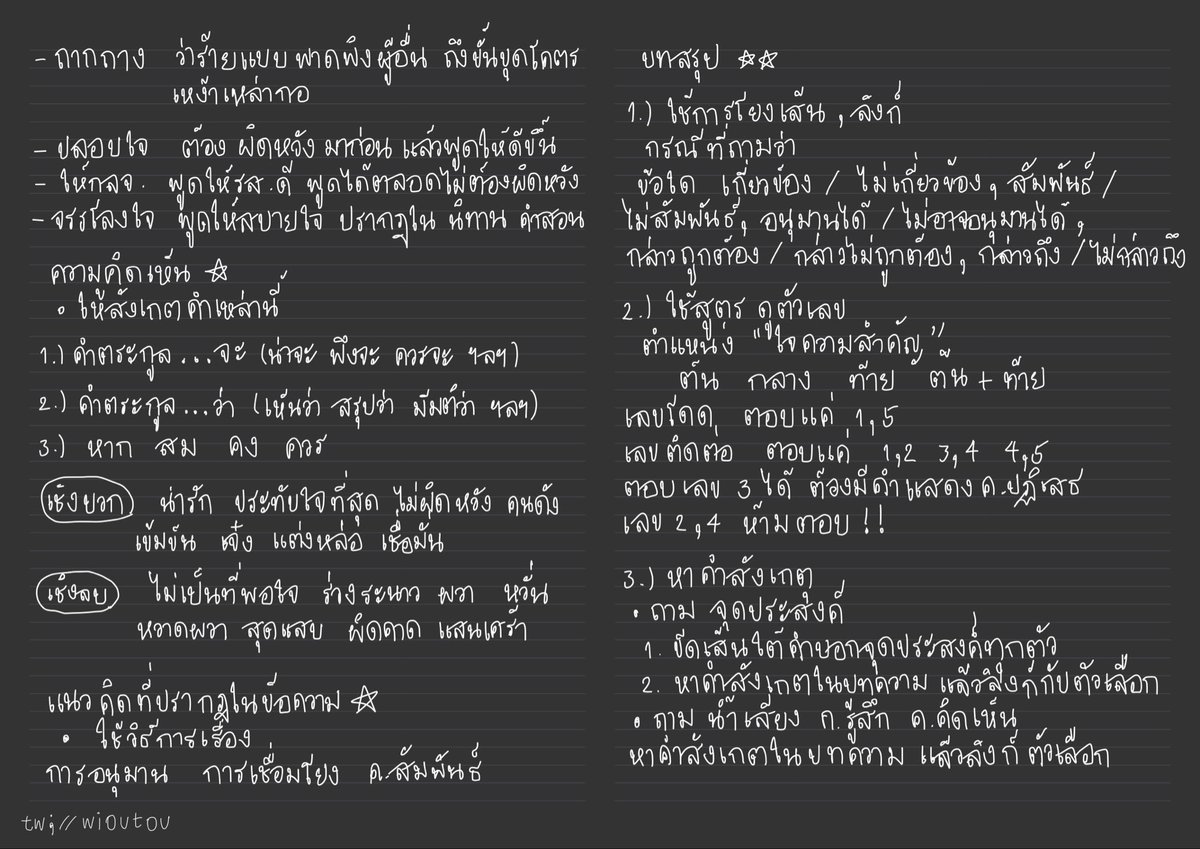 - ถากถาง ว่าร้ายแบบ พาดพิงผู้อื่น ถึงขั้นขุดโคตร
เหง้าเหล่ากอ
- ปลอบใจ ต้อง ผิดหวัง มาก่อน แล้วพูดให้ดีขึ้น
- ให้กลจ. พูดให้รส.ดี พูดได้ตลอดไม่ต้องผิดหวัง
- จรรโลงใจ พูดให้สบายใจ ปรากฏใน นิทาน คำสอน
ความคิดเห็น ☆
• ให้สังเกตคำเหล่านี้
1.) คำตระกูล ...จะ (น่าจะ พึงจะ ควรจะ ฯลฯ)
2.) คำตระกูล ...ว่า (เห็นว่า สรุปว่า มีมติว่า ฯลฯ)
3.) หาก สม คง ควร
เชิงบวก น่ารัก ประทับใจที่สุด ไม่ผิดหวัง คนดัง
เข้มข้น เจ๋ง แต่งหล่อ เชื่อมั่น
เชิงลบ ไม่เป็นที่พอใจ ร่างระนาว ผวา หวั่น
หวาดผวา สุดแสบ ผิดคาด แสนเศร้า
แนวคิดที่ปรากฏในข้อความ ☆
• ใช้วิธีการเรื่อง
การอนุมาน การเชื่อมโยง ค.สัมพันธ์
tw;// wioutou
บทสรุป ☆☆
1.) ใช้การโยงเส้น , ลิงก์
กรณีที่ถามว่า
ข้อใด เกี่ยวข้อง / ไม่เกี่ยวข้อง, สัมพันธ์ /
ไม่สัมพันธ์, อนุมานได้ / ไม่อาจอนุมานได้,
กล่าวถูกต้อง / กล่าวไม่ถูกต้อง, กล่าวถึง / ไม่กล่าวถึง
2.) ใช้สูตร ดูตัวเลข
ตำแหน่ง "ใจความสำคัญ"
ต้น กลาง ท้าย ต้น + ท้าย
เลขโดด ตอบแค่ 1,5
เลขติดต่อ ตอบแค่ 1,2 3,4 4,5
ตอบเลข 3 ได้ ต้องมีคำแสดง ค.ปฏิเสธ
เลข 2,4 ห้ามตอบ !!
3.) หาคำสังเกต
• ถาม จุดประสงค์
1. ขีดเส้นใต้คำบอกจุดประสงค์ทุกตัว
2. หาคำสังเกตในบทความ แล้วลิงก์กับตัวเลือก
• ถาม น้ำเสียง ค.รู้สึก ค.คิดเห็น
หาคำสังเกตในบทความ แล้วลิงก์ ตัวเลือก